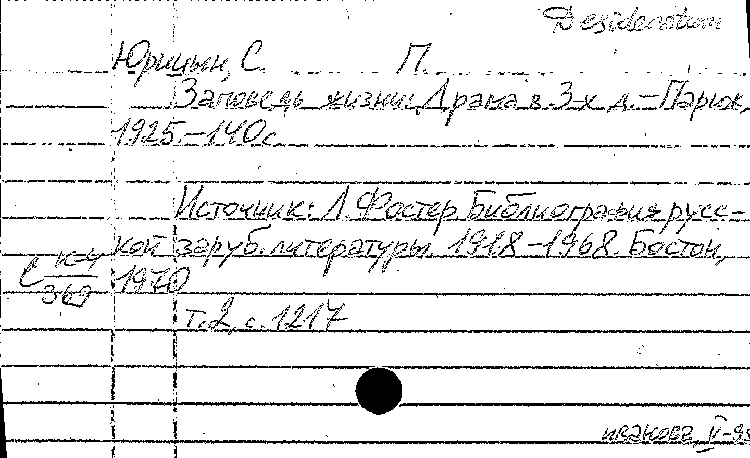 Desideratum
Юрицын, С. П.
Заповедь жизни: Драма в 3-х д. – Париж,
1925. – 140 с.
Источник: Л. Фостер Библиография русс-
кой заруб. литературы 1918 – 1968. Бостон,
1970
с К-4
369
т. 2, с. 1217
иванова, IV-95